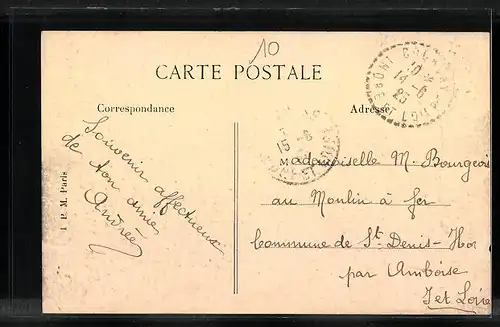 10
CARTE POSTALE
Correspondance
Adresse
Souvenir affectueux
de ton amie
Andrée
I. P. M. Paris
10
14-6
25
15
Mademoiselle M. Bourgeois
au Moulin à fer
Commune de St Denis-Hors
par Amboise
I et Loire